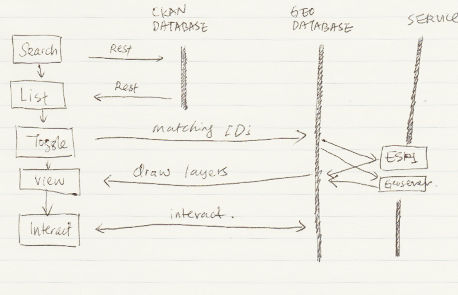 CKAN
DATABASE
GEO
DATABASE
SERVICE
Search
Rest
List
Rest
Toggle
matching IDs
ESRI
View
draw layers
Geoserver.
Interact
interact.